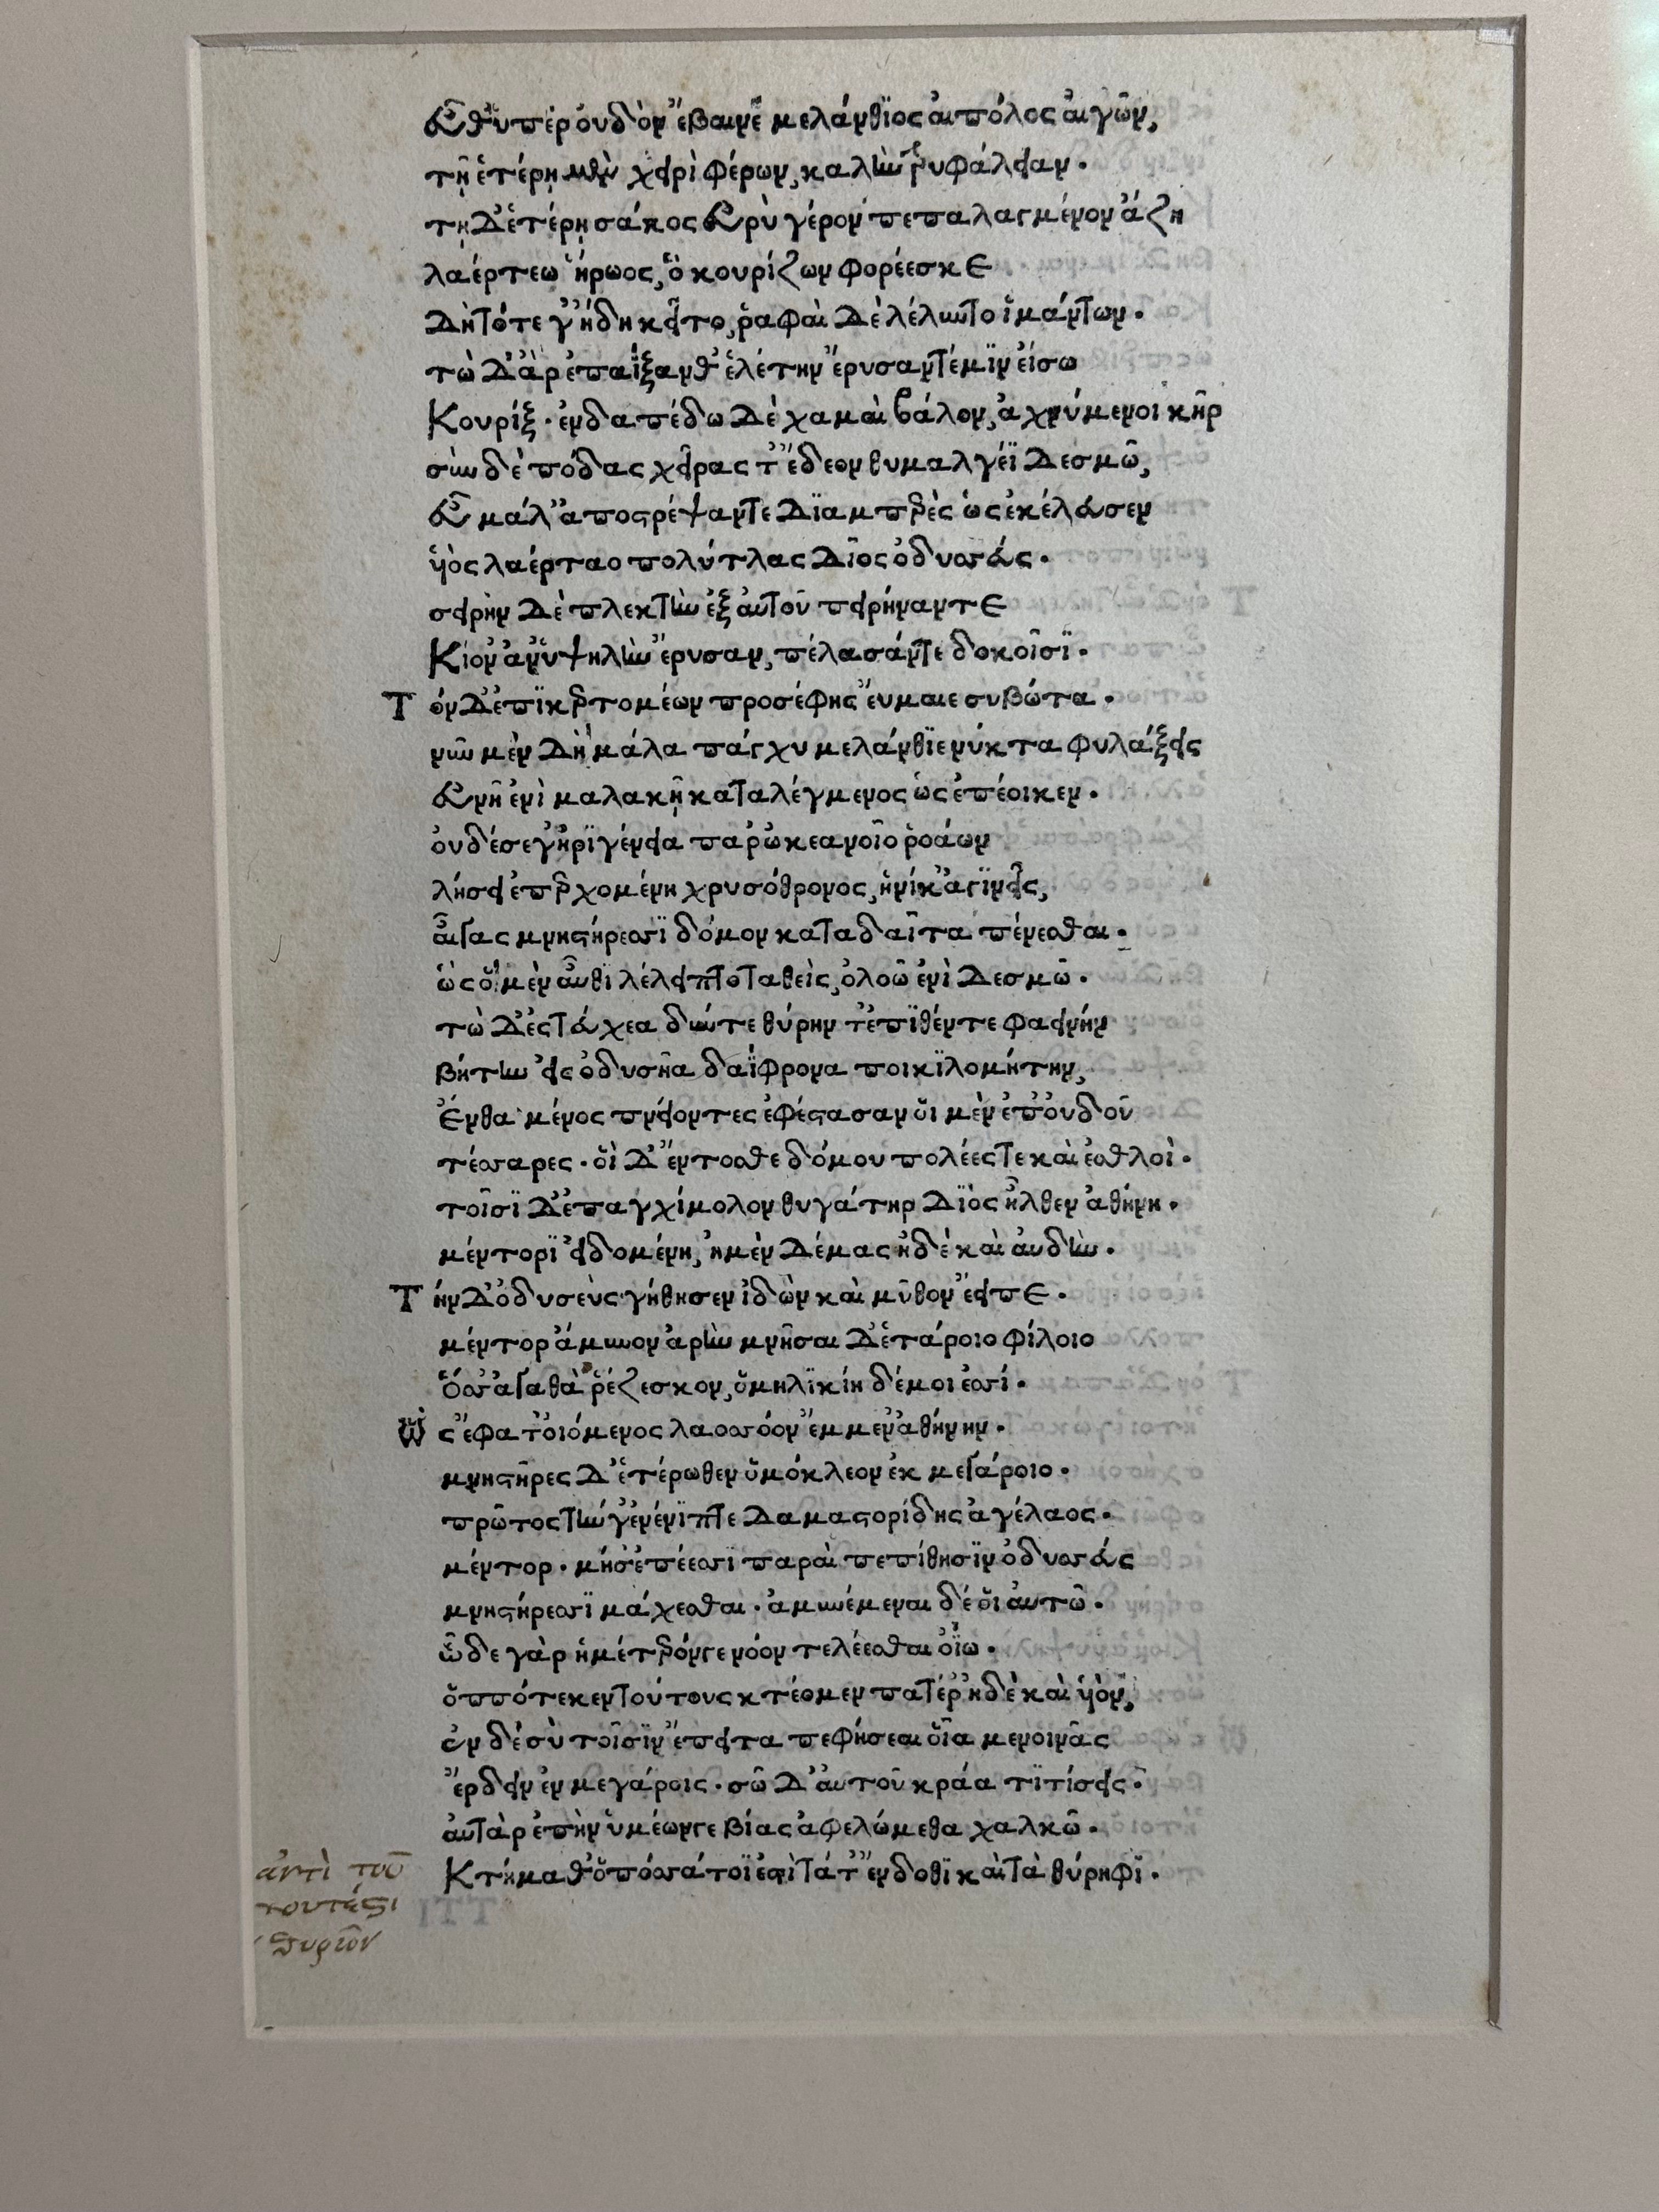 Εὖθ᾽ ὑπὲρ οὐδὸν ἔβαινε μελάνθιος αἰπόλος αἰγῶν,
τῇ ἑτέρῃ μὲν χειρὶ φέρων, καλὴν τρυφάλειαν·
τῇ δ᾽ ἑτέρῃ σάκος εὐρὺ γέρον πεπαλαγμένον ἄζη
λαέρτεω ἥρωος, ὃ κουρίζων φορέεσκε
δὴ τότε γ᾽ ἤδη κεῖτο, ῥαφαὶ δὲ λέλυντο ἱμάντων·
τὼ δ᾽ ἂρ ἐπαΐξανθ᾽ ἑλέτην ἔρυσάν τέ μιν εἴσω
Κουρίξ· ἐν δαπέδω δὲ χαμαὶ βάλον, ἀχνύμενοι κῆρ
σὺν δὲ πόδας χεῖρας τ᾽ ἔδεον θυμαλγέϊ δεσμῶ,
Εὖ μάλ᾽ ἀποστρέψαντε διαμπερὲς ὡς ἐκέλευσεν
ὑὸς λαέρταο πολύτλας δῖος ὀδυσσεύς·
σειρὴν δὲ πλεκτὴν ἐξ αὐτοῦ πειρήναντε
Κίον᾽ ἀν᾽ ὑψηλὴν ἔρυσαν, πέλασάν τε δοκοῖσι·
Τὸν δ᾽ ἐπικερτομέων προσέφης εὔμαιε συβώτα·
νῦν μὲν δὴ μάλα πάγχυ μελάνθιε νύκτα φυλάξεις
Εὐνῇ ἐνὶ μαλακῇ καταλέγμενος ὡς ἐπέοικεν·
οὐδέ σε γ᾽ ἠριγένεια παρ᾽ ὠκεανοῖο ῥοάων
λήσει ἐπερχομένη χρυσόθρονος, ἡνίκ᾽ ἀγινεῖς,
αἶγας μνηστήρεσσι δόμον κατα δαῖτα πένεσθαι·
ὡς ὁ μὲν αὖθι λέλειπτο ταθεὶς, ὀλοῶ ἐνὶ δεσμῶ·
τὼ δ᾽ ἐς τεύχεα δύντε θύρην τ᾽ ἐπιθέντε φαεινήν
βήτην εἰς ὀδυσῆα δαΐφρονα ποικιλομήτην,
Ἔνθα μένος πνείοντες ἐφέστασαν οἱ μὲν ἐπ᾽ οὐδοῦ
τέσσαρες· οἱ δ᾽ ἔντοσθε δόμου πολέες τε καὶ ἐσθλοὶ·
τοῖσι δ᾽ ἐπαγχίμολον θυγάτηρ διὸς ἦλθεν ἀθήνη·
μέντορι εἰδομένη, ἠμὲν δέμας ἠδὲ καὶ αὐδὴν·
Τὴν δ᾽ ὀδυσεὺς γήθησεν ἰδὼν καὶ μῦθον ἔειπε·
μέντορ ἄμυνον ἀρὴν μνῆσαι δ᾽ ἑτάροιο φίλοιο
ὅς σ᾽ ἀγαθὰ ῥέζεσκον, ὁμηλικίη δέ μοι ἐσσί·
Ὣς ἔφατ᾽ οἰόμενος λαοσσόον ἔμμεν᾽ ἀθήνην·
μνηστῆρες δ᾽ ἑτέρωθεν ὁμόκλεον ἐκ μεγάροιο·
πρῶτος τήν γ᾽ ἐνένιπτε δαμαστορίδης ἀγέλαος·
μέντορ· μή σ᾽ ἐπέεσσι παραὶ πεπίθησιν ὀδυσσεύς
μνηστήρεσσι μάχεσθαι· ἀμυνέμεναι δέ οἱ αὐτῶ·
ὧδε γὰρ ἡμέτερόν γε νόον τελέεσθαι ὀΐω·
ὁππότε κεν τούτους κτέομεν πατέρ᾽ ἠδὲ καὶ ὑὸν,
ἐν δὲ σὺ τοῖσιν ἔπειτα πεφήσεαι οἷα μενοινᾶς
ἔρδειν ἐν μεγάροις· σῶ δ᾽ αὐτοῦ κράα τι τίσεις·
αὐτὰρ ἐπὴν ὑμέων γε βίας ἀφελώμεθα χαλκῶ·
Κτήμαθ᾽ ὁπόσσά τοι ἐστὶ τά τ᾽ ἔνδοθι καὶ τὰ θύρηφι·
ἀντὶ τοῦ
τουτέστι
θυρῶν